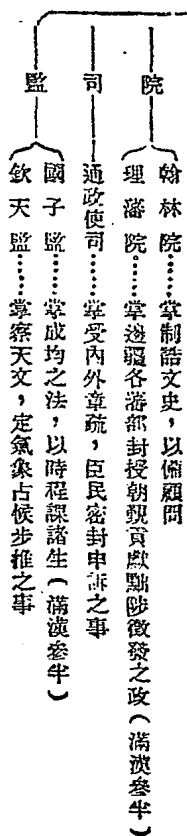 院
翰林院……掌制誥文史，以備顧問
理藩院……掌邊疆各藩部封授朝覲貢獻黜陟徵發之政（滿漢參半）
司
通政使司……掌受內外章疏，臣民密封申訴之事
監
國子監……掌成均之法，以時程課諸生（滿漢參半）
欽天監……掌察天文，定氣象占候步推之事